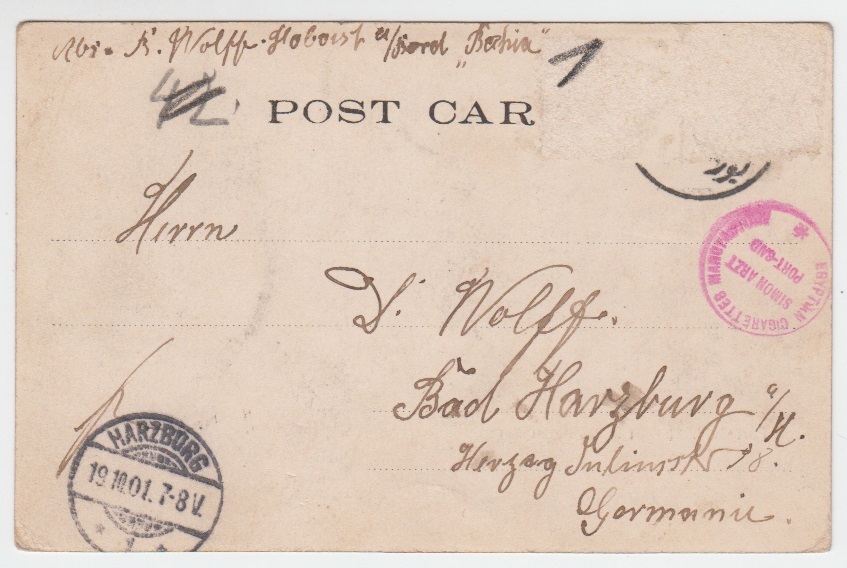 Abs. K. Wolff. Hoboist a/Bord „Bahia"
1
42
POST CAR
Herrn
D. Wolff.
Bad Harzburg a/H.
Herzog Juliusstr 78.
Germania.
بور
EGYPTIAN CIGARETTES MANUFACTURER
SIMON ARZT
PORT-SAID
HARZBURG
19.10.01.7-8V.
* 1 *